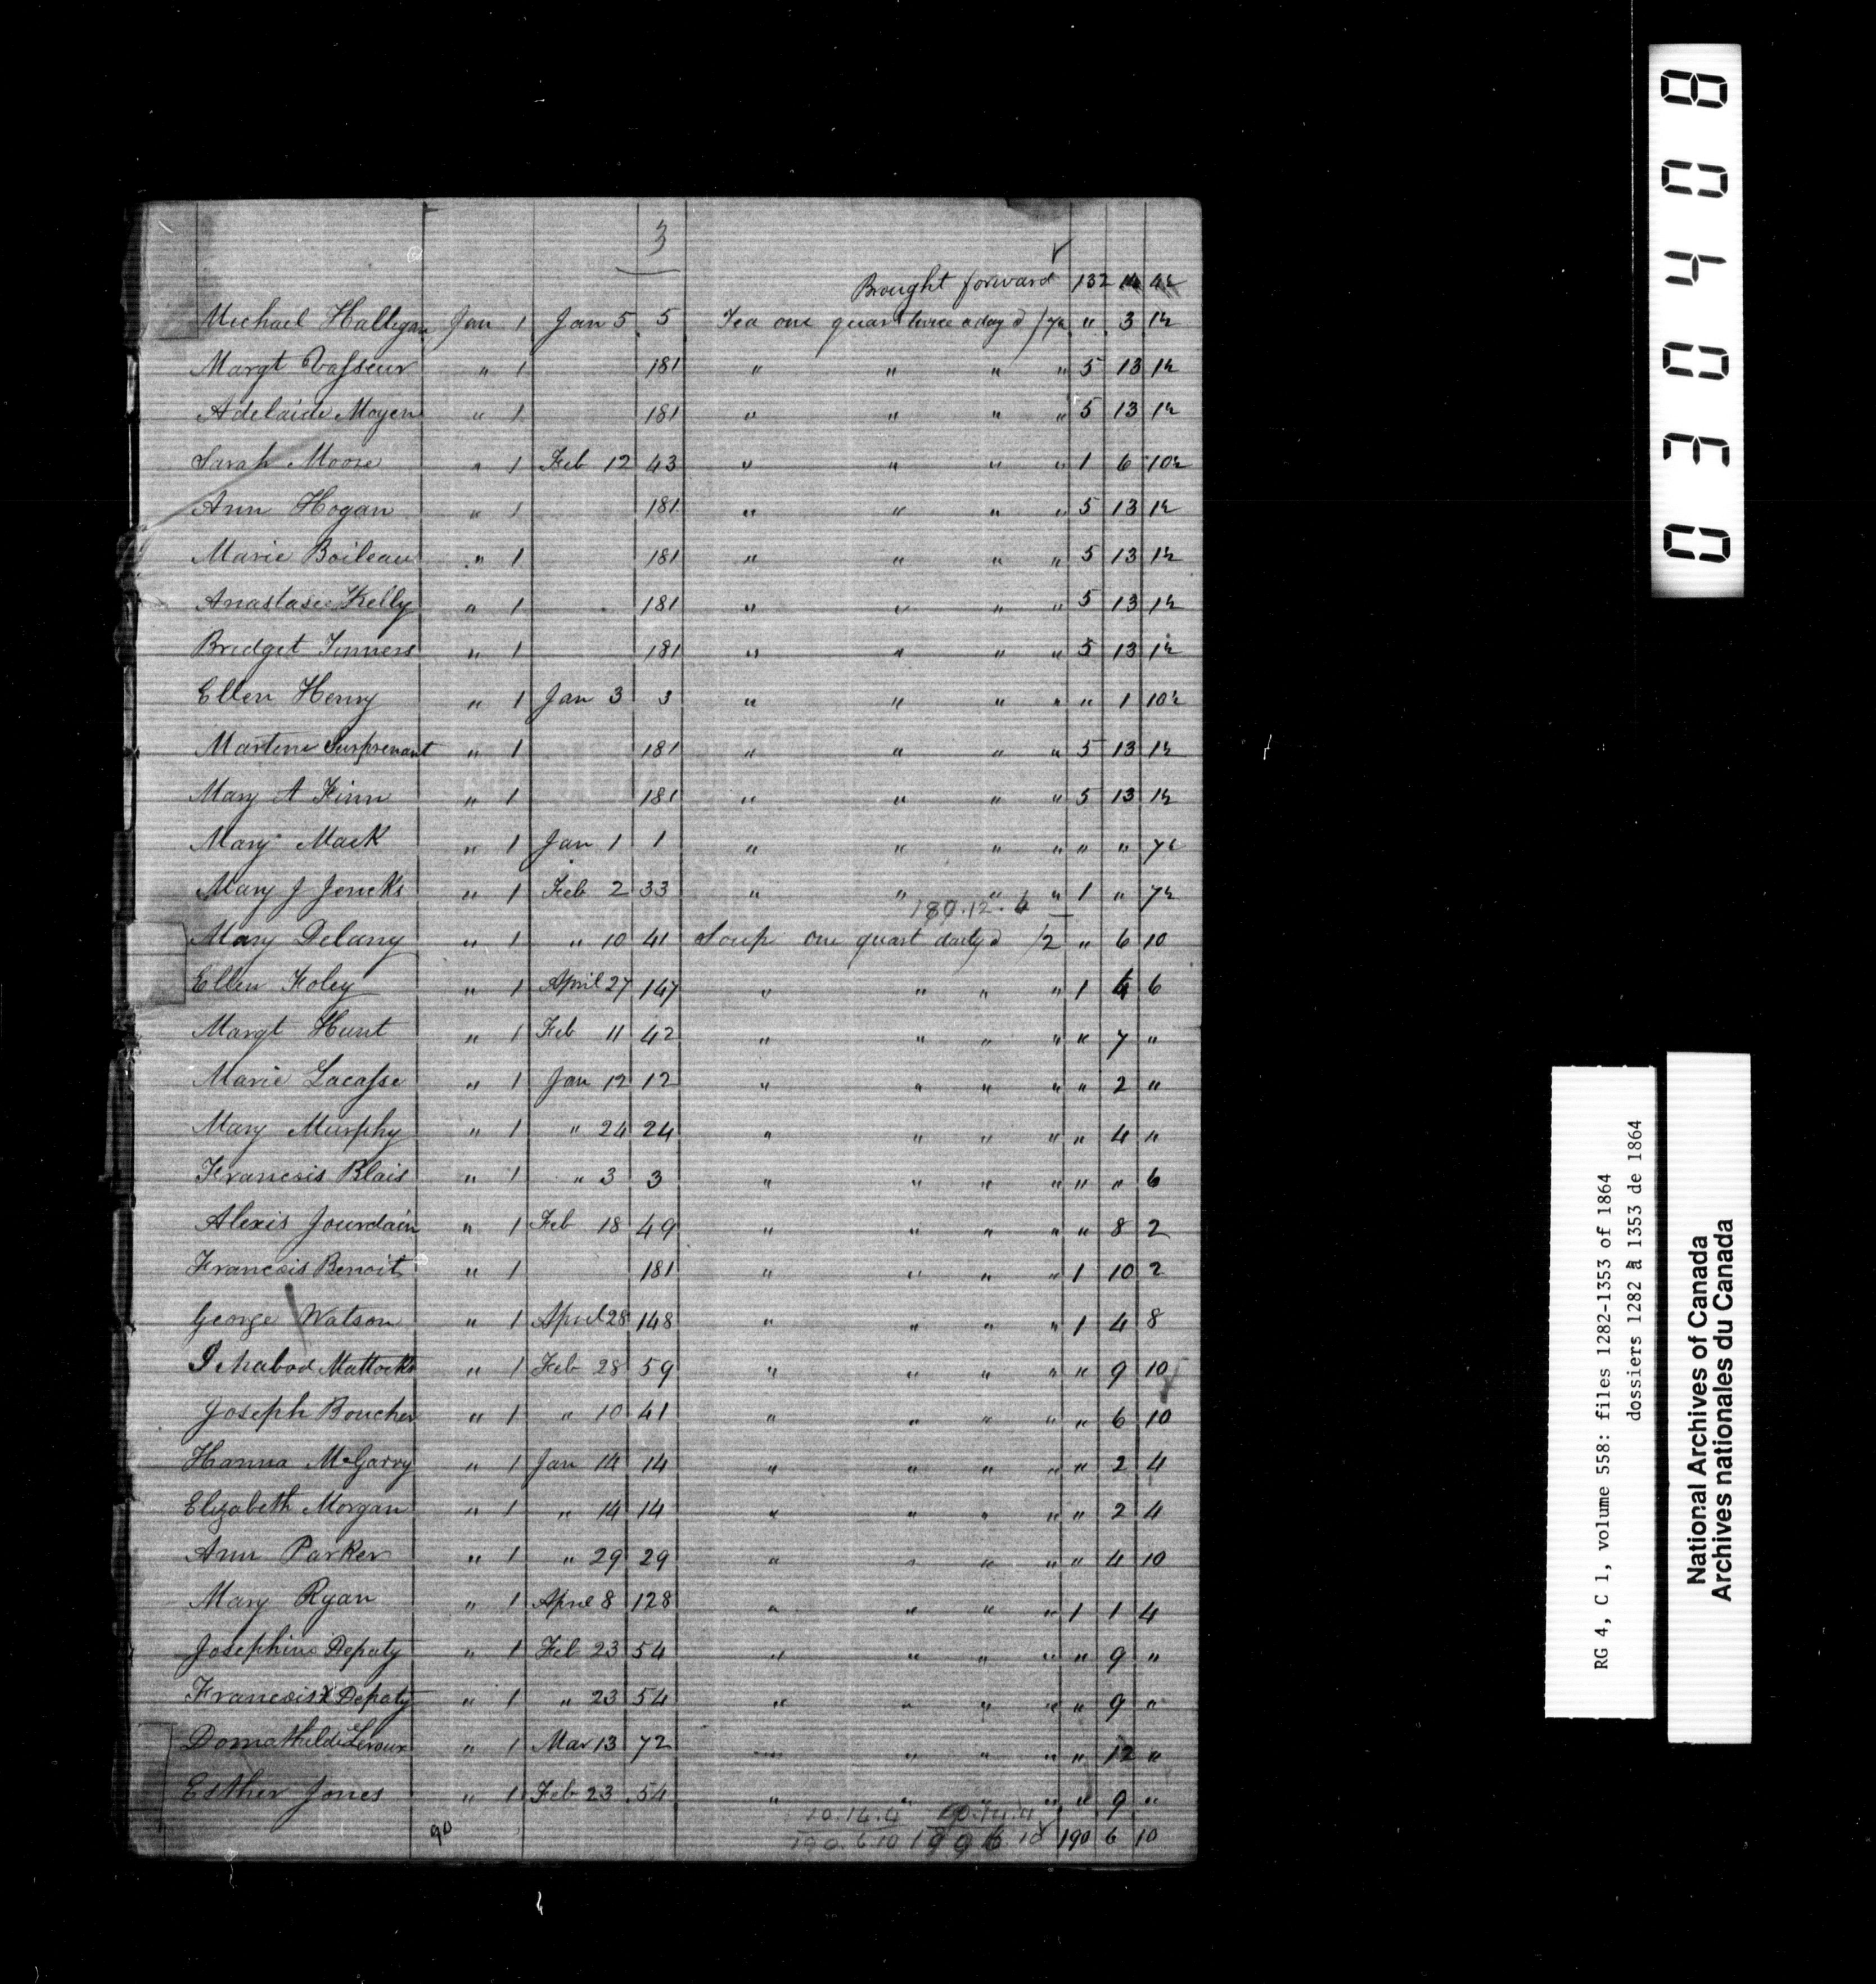 3
Brought forward 132 14 4½
Michael Hallegan Jan 1 Jan 5 5 Tea one quart twice a day @ /7½ " 3 1½
Margt Vasseur " 1 181 " " " " 5 13 1½
Adelaide Moyen " 1 181 " " " " 5 13 1½
Sarah Moore " 1 Feb 12 43 " " " " 1 6 10½
Ann Hogan " 1 181 " " " " 5 13 1½
Marie Boileau " 1 181 " " " " 5 13 1½
Anastasie Kelly " 1 181 " " " " 5 13 1½
Bridget Tinners " 1 181 " " " " 5 13 1½
Ellen Henry " 1 Jan 3 3 " " " " " 1 10½
Martine Surprenant " 1 181 " " " " 5 13 1½
Mary A Finn " 1 181 " " " " 5 13 1½
Mary Mack " 1 Jan 1 1 " " " " " " 7½
Mary J Jencks " 1 Feb 2 33 " " " " 1 " 7½
180.12.6
Mary Delany " 1 " 10 41 Soup one quart daily @ /2 " 6 10
Ellen Foley " 1 April 27 147 " " " " 1 4 6
Margt Hunt " 1 Feb 11 42 " " " " " 7 "
Marie Lacasse " 1 Jan 12 12 " " " " " 2 "
Mary Murphy " 1 " 24 24 " " " " " 4 "
Francois Blais " 1 " 3 3 " " " " " " 6
Alexis Jourdain " 1 Feb 18 49 " " " " " 8 2
Francois Benoit " 1 181 " " " " 1 10 2
George Watson " 1 April 28 148 " " " " 1 4 8
Ichabod Mattocks " 1 Feb 28 59 " " " " " 9 10
Joseph Boucher " 1 " 10 41 " " " " " 6 10
Hanna McGarry " 1 Jan 14 14 " " " " " 2 4
Elizabeth Morgan " 1 " 14 14 " " " " " 2 4
Ann Parker " 1 " 29 29 " " " " " 4 10
Mary Ryan " 1 April 8 128 " " " " 1 1 4
Josephine Depaty " 1 Feb 23 54 " " " " " 9 "
Francois X Depaty " 1 " 23 54 " " " " " 9 "
Domathilde Leroux " 1 Mar 13 72 " " " " " 12 "
Esther Jones " 1 Feb 23 54 " " " " " 9 "
10.14.4
90 190.6.10 190 6 10 190 6 10
030408
RG 4, C 1, volume 558: files 1282-1353 of 1864
dossiers 1282 à 1353 de 1864
National Archives of Canada
Archives nationales du Canada